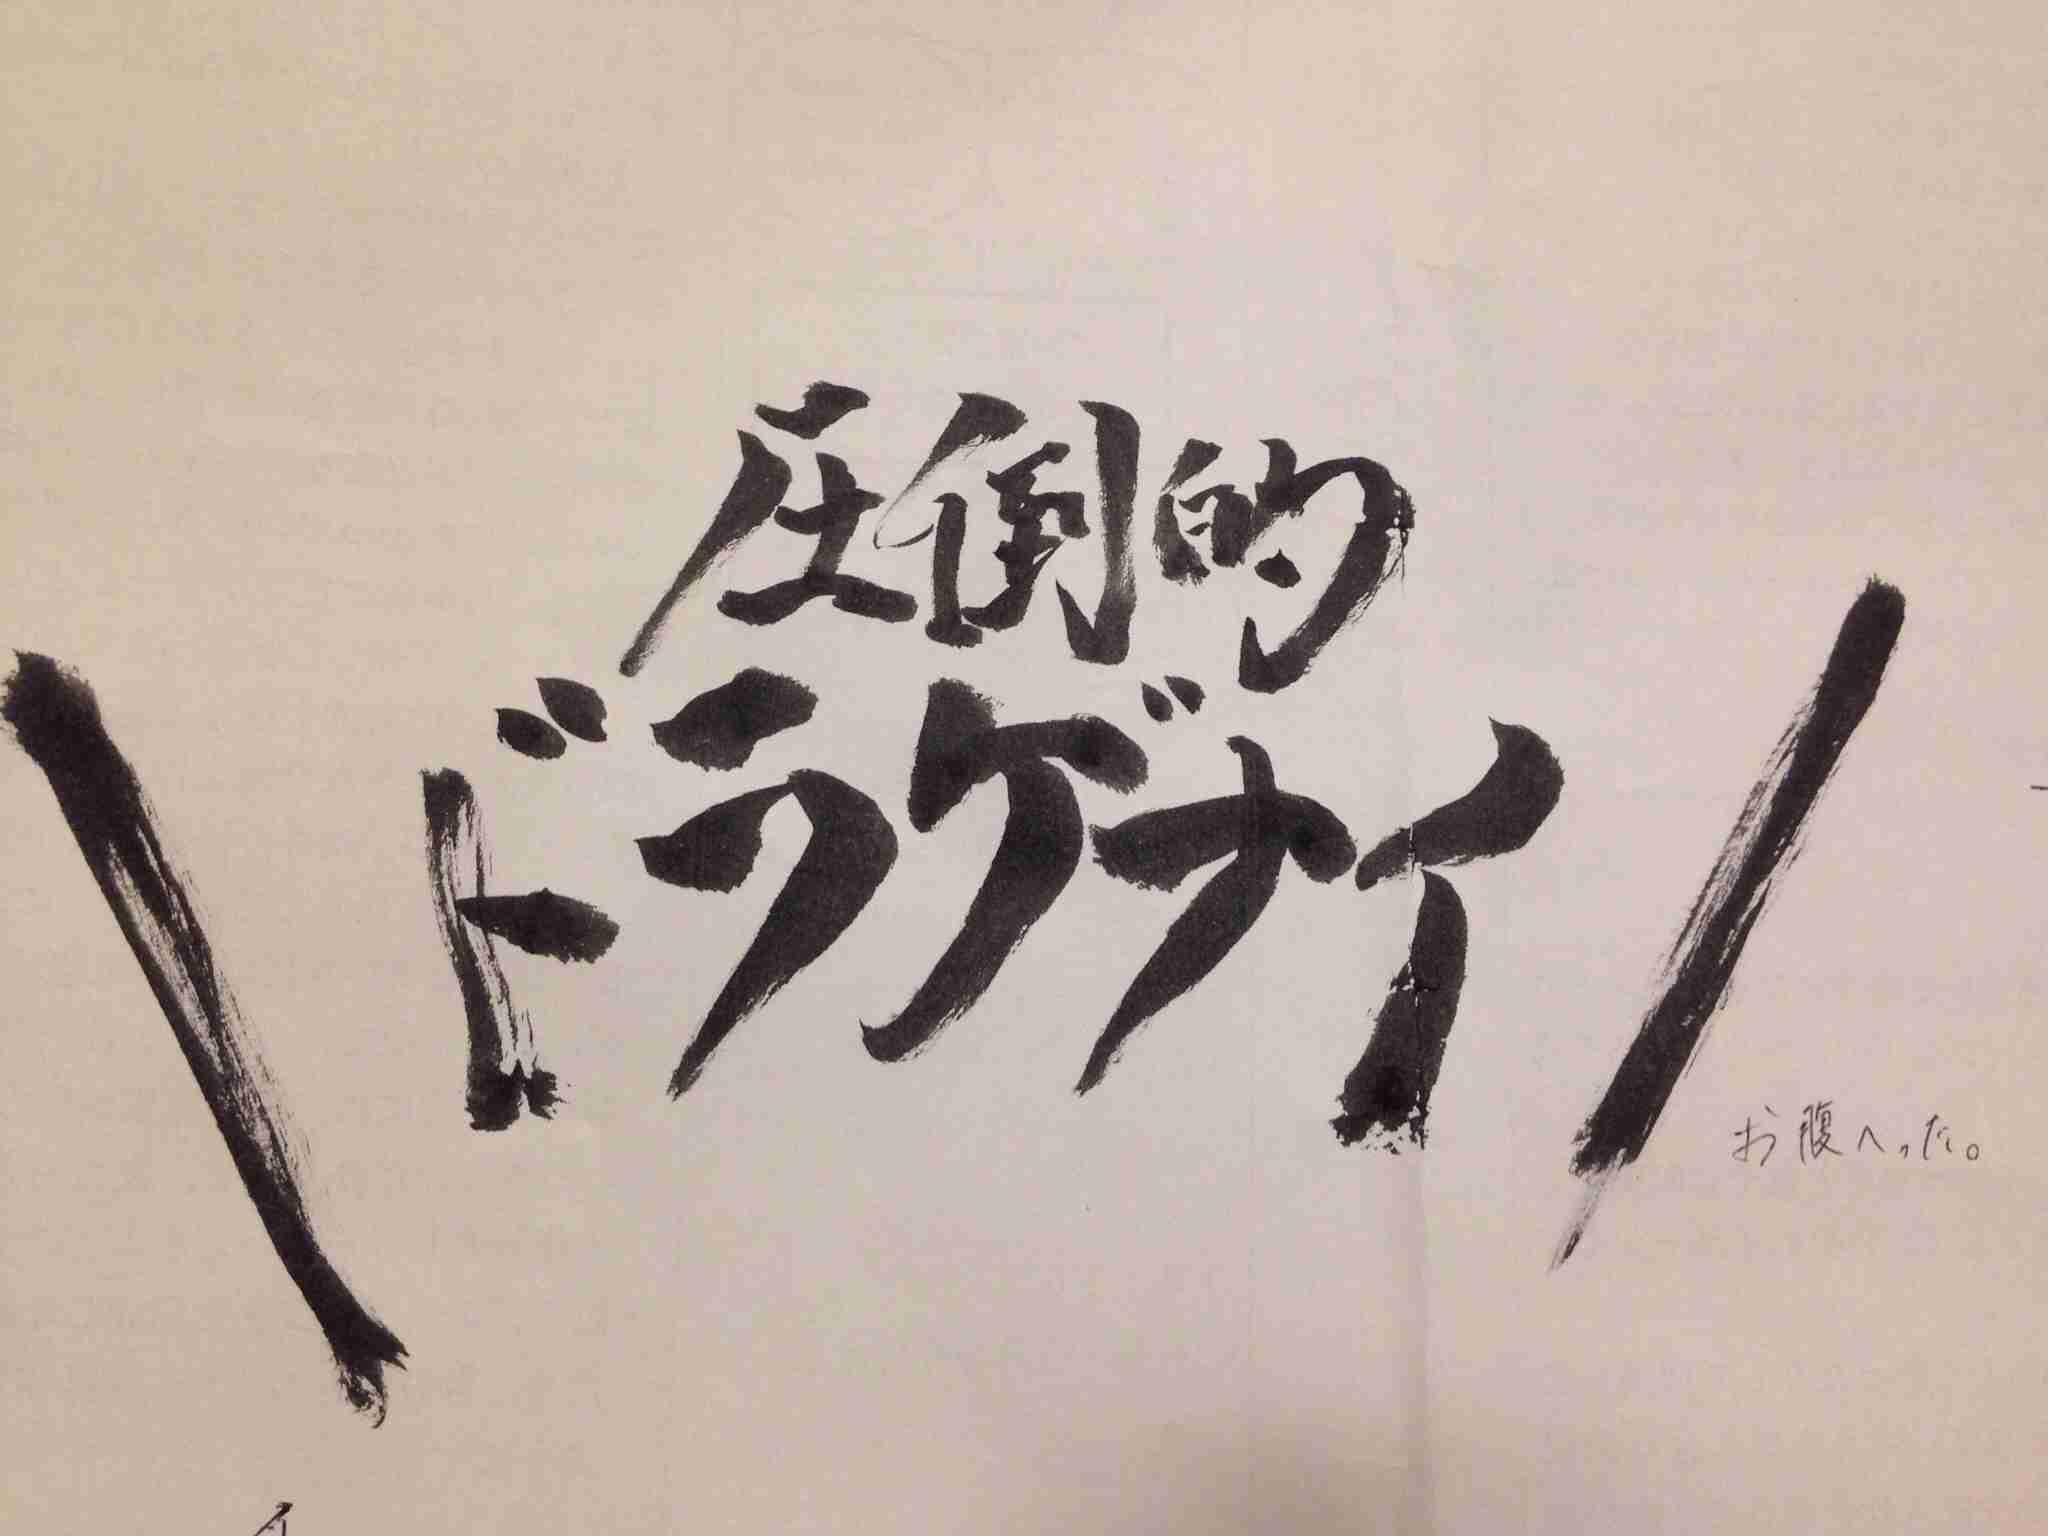 圧倒的
\ ドラゲナイ /
お腹へった。